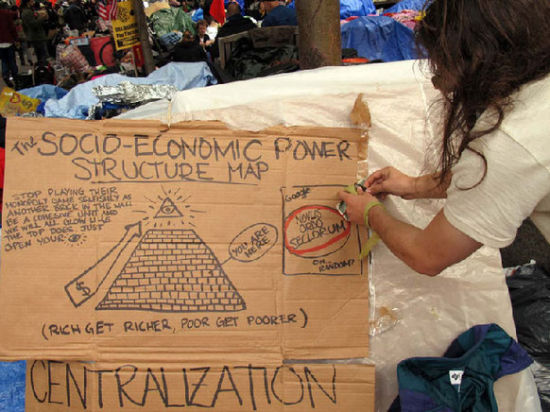 The SOCIO-ECONOMIC POWER
STRUCTURE MAP
STOP PLAYING THEIR
MONOPOLY GAME SELFISHLY AS
ANOTHER BRICK IN THE WALL
BE A COHESIVE UNIT AND
WE WILL ALL GLOW U-LIKE
THE TOP DOES JUST
OPEN YOUR
$
YOU ARE
HERE
Google
NOVUS
ORDO
SECLORUM
OR...
RANDOM?
(RICH GET RICHER, POOR GET POORER)
CENTRALIZATION